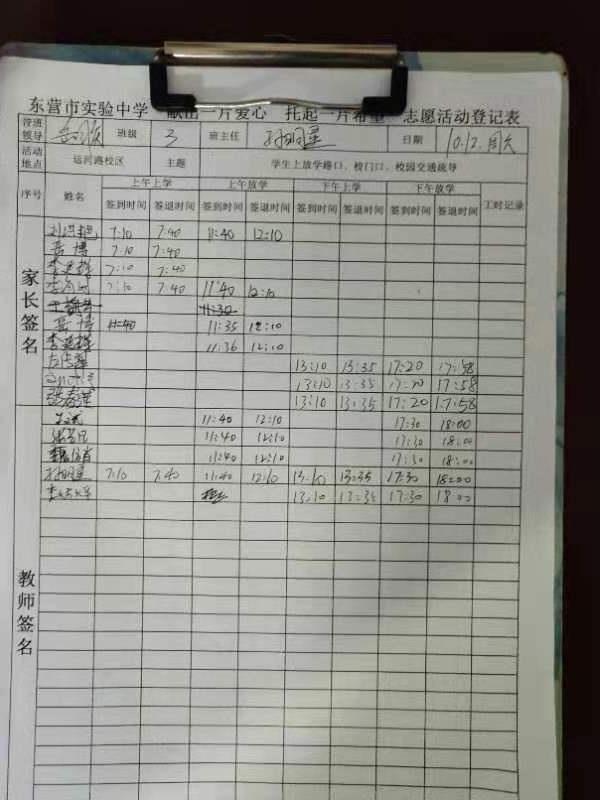 东营市实验中学 献出一片爱心 托起一片希望 志愿活动登记表
带班领导 班级 3 班主任 孙明星 日期 10.12.周六
活动地点 运河路校区 主题 学生上放学路口、校门口、校园交通疏导
序号 姓名 上午上学 上午放学 下午上学 下午放学 工时记录
签到时间 签退时间 签到时间 签退时间 签到时间 签退时间 签到时间 签退时间
家长签名
7:10 7:40 11:40 12:10
7:10 7:40
7:10 7:40
7:10 7:40 11:40 12:10
11:30
11:40 11:35 12:10
11:36 12:10
13:10 13:35 17:20 17:58
13:10 13:35 17:20 17:58
13:10 13:35 17:20 17:58
教师签名
11:40 12:10 17:30 18:00
11:40 12:10 17:30 18:00
11:40 12:10 17:30 18:00
孙明星 7:10 7:40 11:40 12:10 13:10 13:35 17:30 18:00
13:10 13:35 17:30 18:00